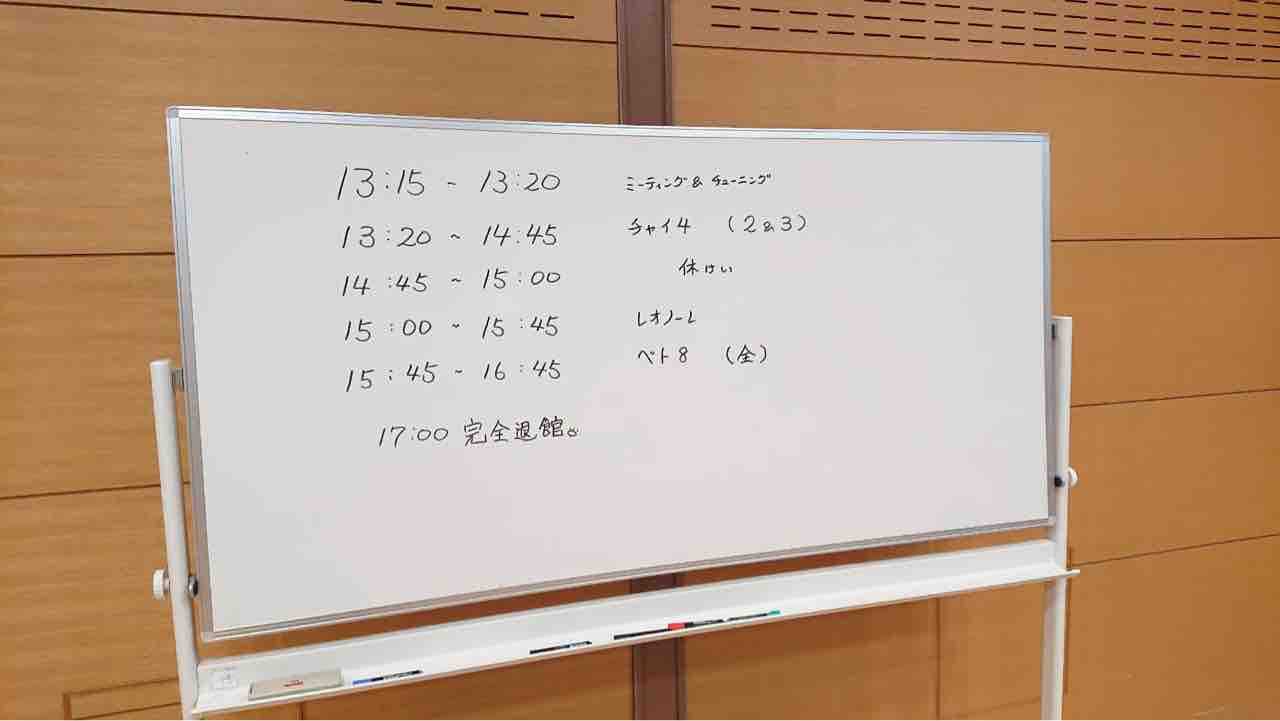 13:15 - 13:20 ミーティング & チューニング
13:20 ~ 14:45 チャイ4 (2&3)
14:45 ~ 15:00 休けい
15:00 ~ 15:45 レオノーレ
15:45 ~ 16:45 ベト8 (全)
17:00 完全退館。